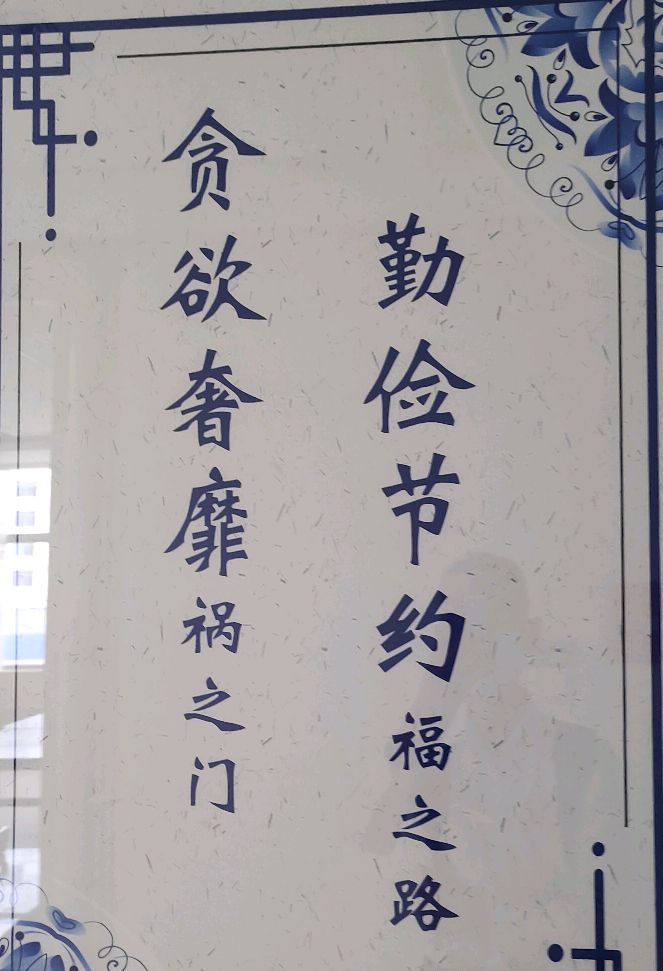 勤俭节约福之路
贪欲奢靡祸之门